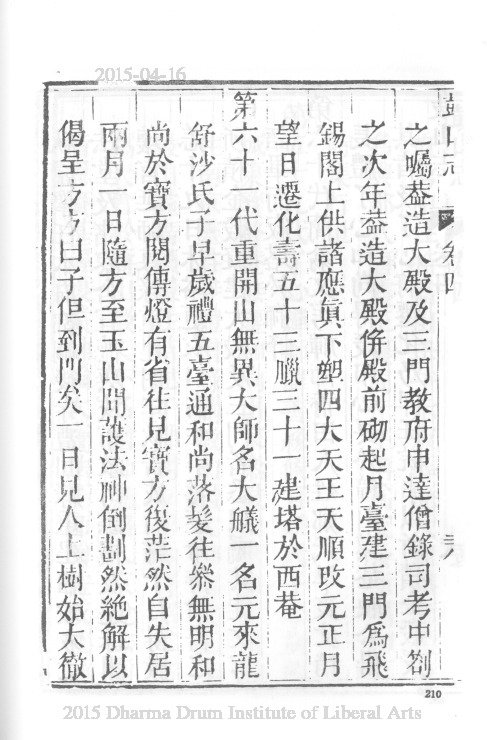 2015-04-16
鼓山志 卷四
之囑葢造大殿及三門敎府申達僧錄司考中劄
之次年葢造大殿倂殿前砌起月臺建三門爲飛
錫閣上供諸應眞下塑四大天王天順改元正月
望日遷化壽五十三臘三十一建塔於西菴
第六十一代重開山無異大師名大艤一名元來龍
舒沙氏子早歲禮五臺通和尚落髮往叅無明和
尚於寶方閱傳燈有省往見寶方後茫然自失居
兩月一日隨方至玉山聞護法神倒劃然絶解以
偈呈方方曰子但到門矣一日見人上樹始大徹
210
2015 Dharma Drum Institute of Liberal Arts